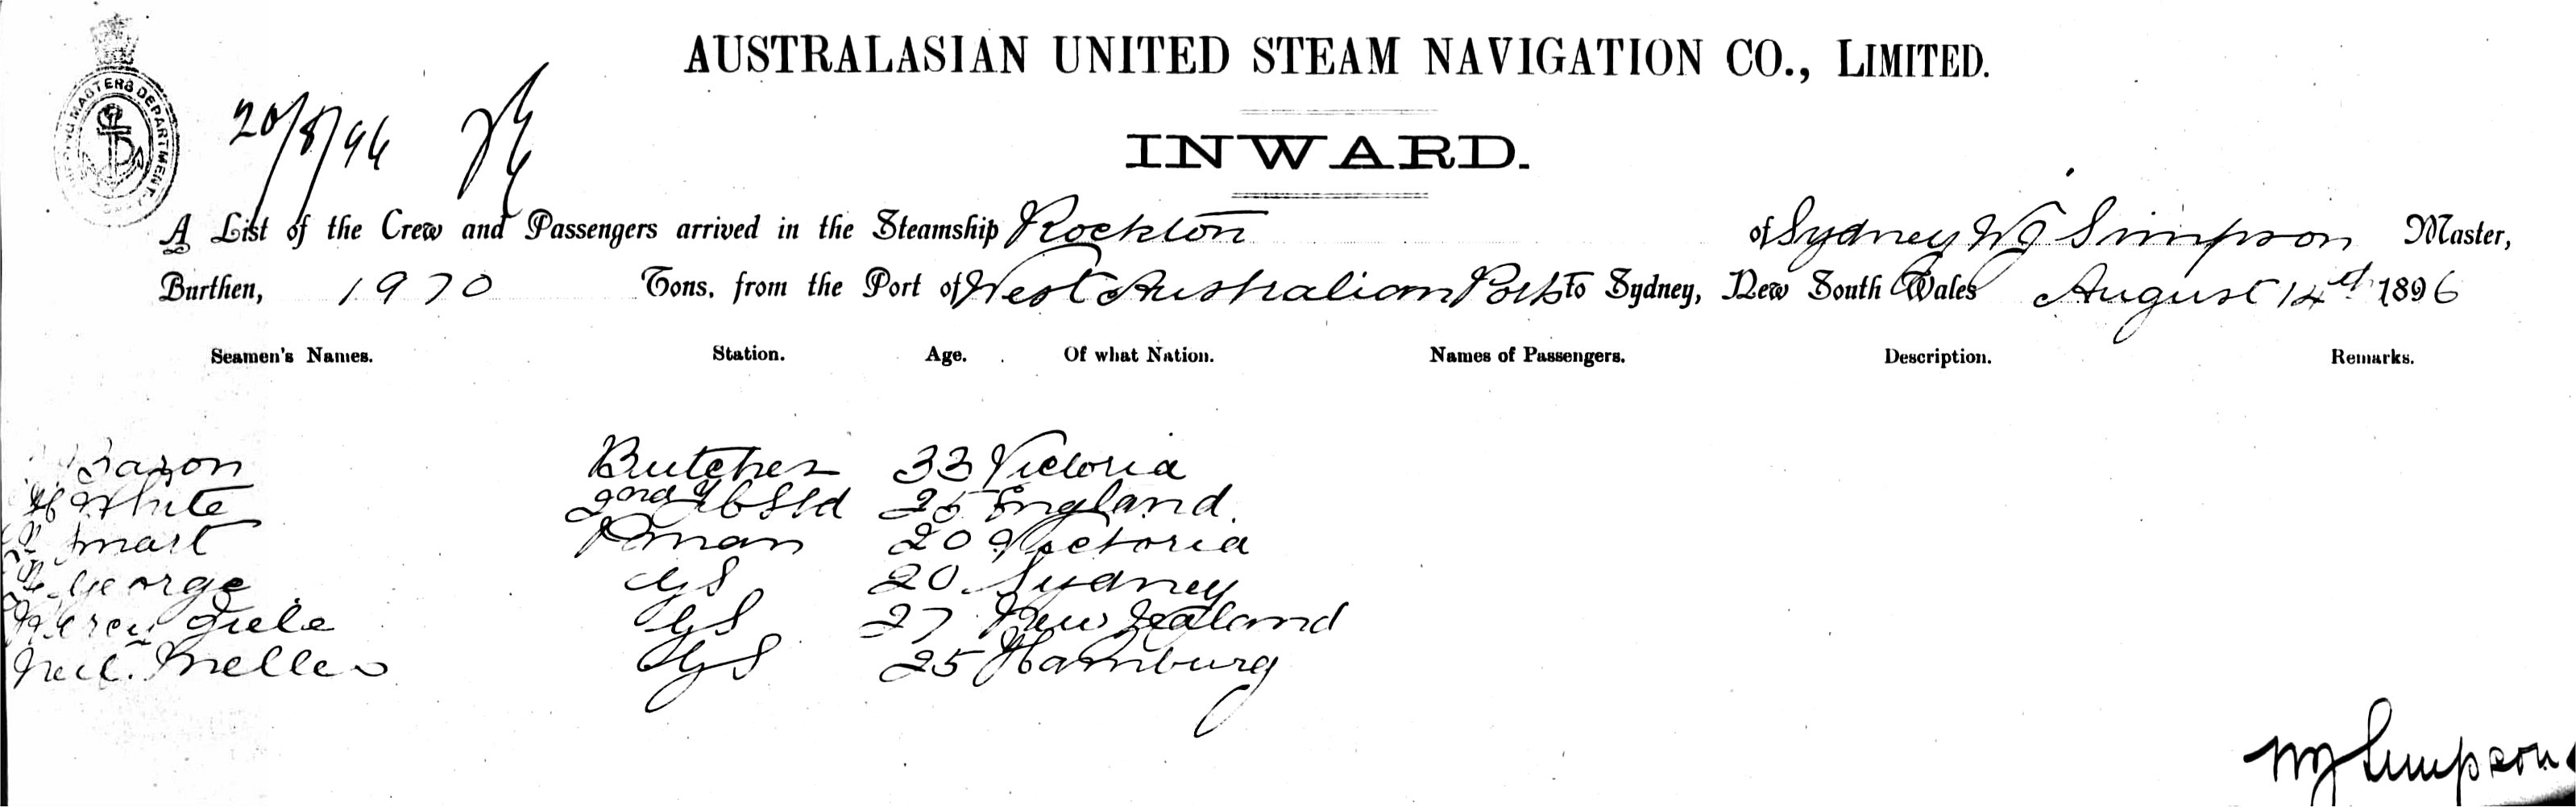 AUSTRALASIAN UNITED STEAM NAVIGATION CO., LIMITED.
MASTERS DEPARTMENT
20/8/96
INWARD.
A List of the Crew and Passengers arrived in the Steamship Rockton of Sydney WJ Simpson Master,
Burthen, 1970 Tons, from the Port of West Australian Ports to Sydney, New South Wales August 14th 1896
Seamen's Names. Station. Age. Of what Nation. Names of Passengers. Description. Remarks.
Butcher 33 Victoria
H White 2nd 25 England
Smart Pman 20 Victoria
George GS 20 Sydney
GS 27 New Zealand
GS 25 Hamburg
WJ Simpson